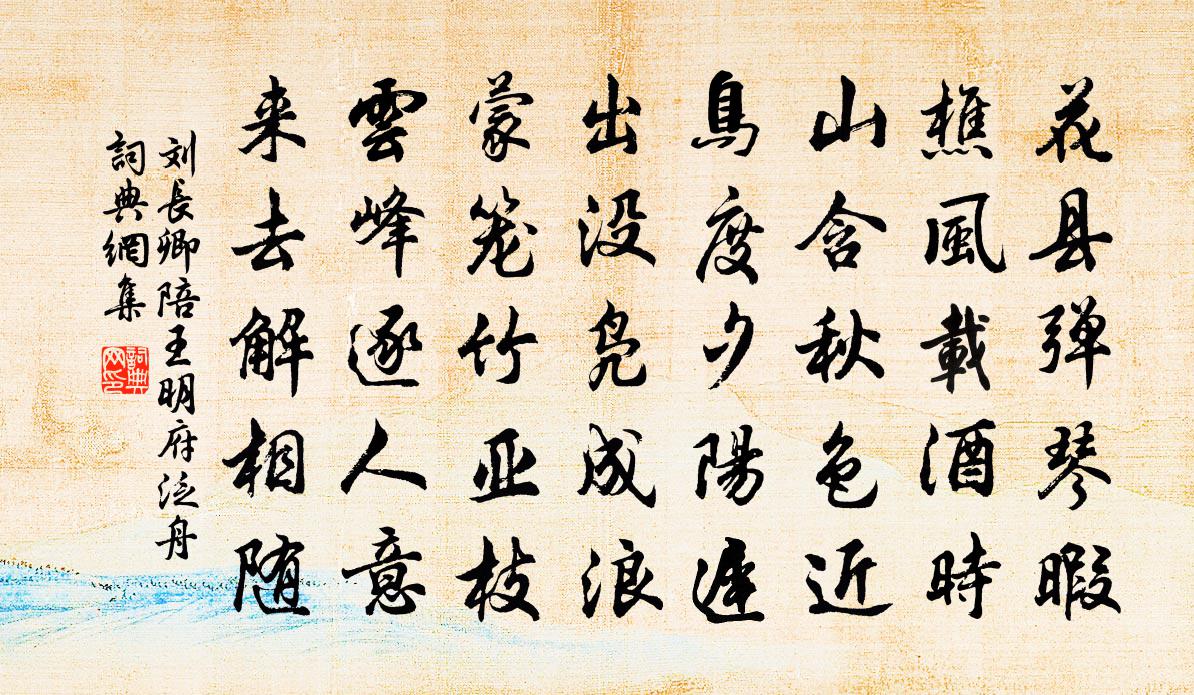 花县弹琴暇
樵風載酒時
山含秋色近
鳥度夕陽遲
出没凫成浪
蒙笼竹亚枝
雲峰逐人意
来去解相随
刘長卿陪王明府泛舟
詞典網集
詞典网印